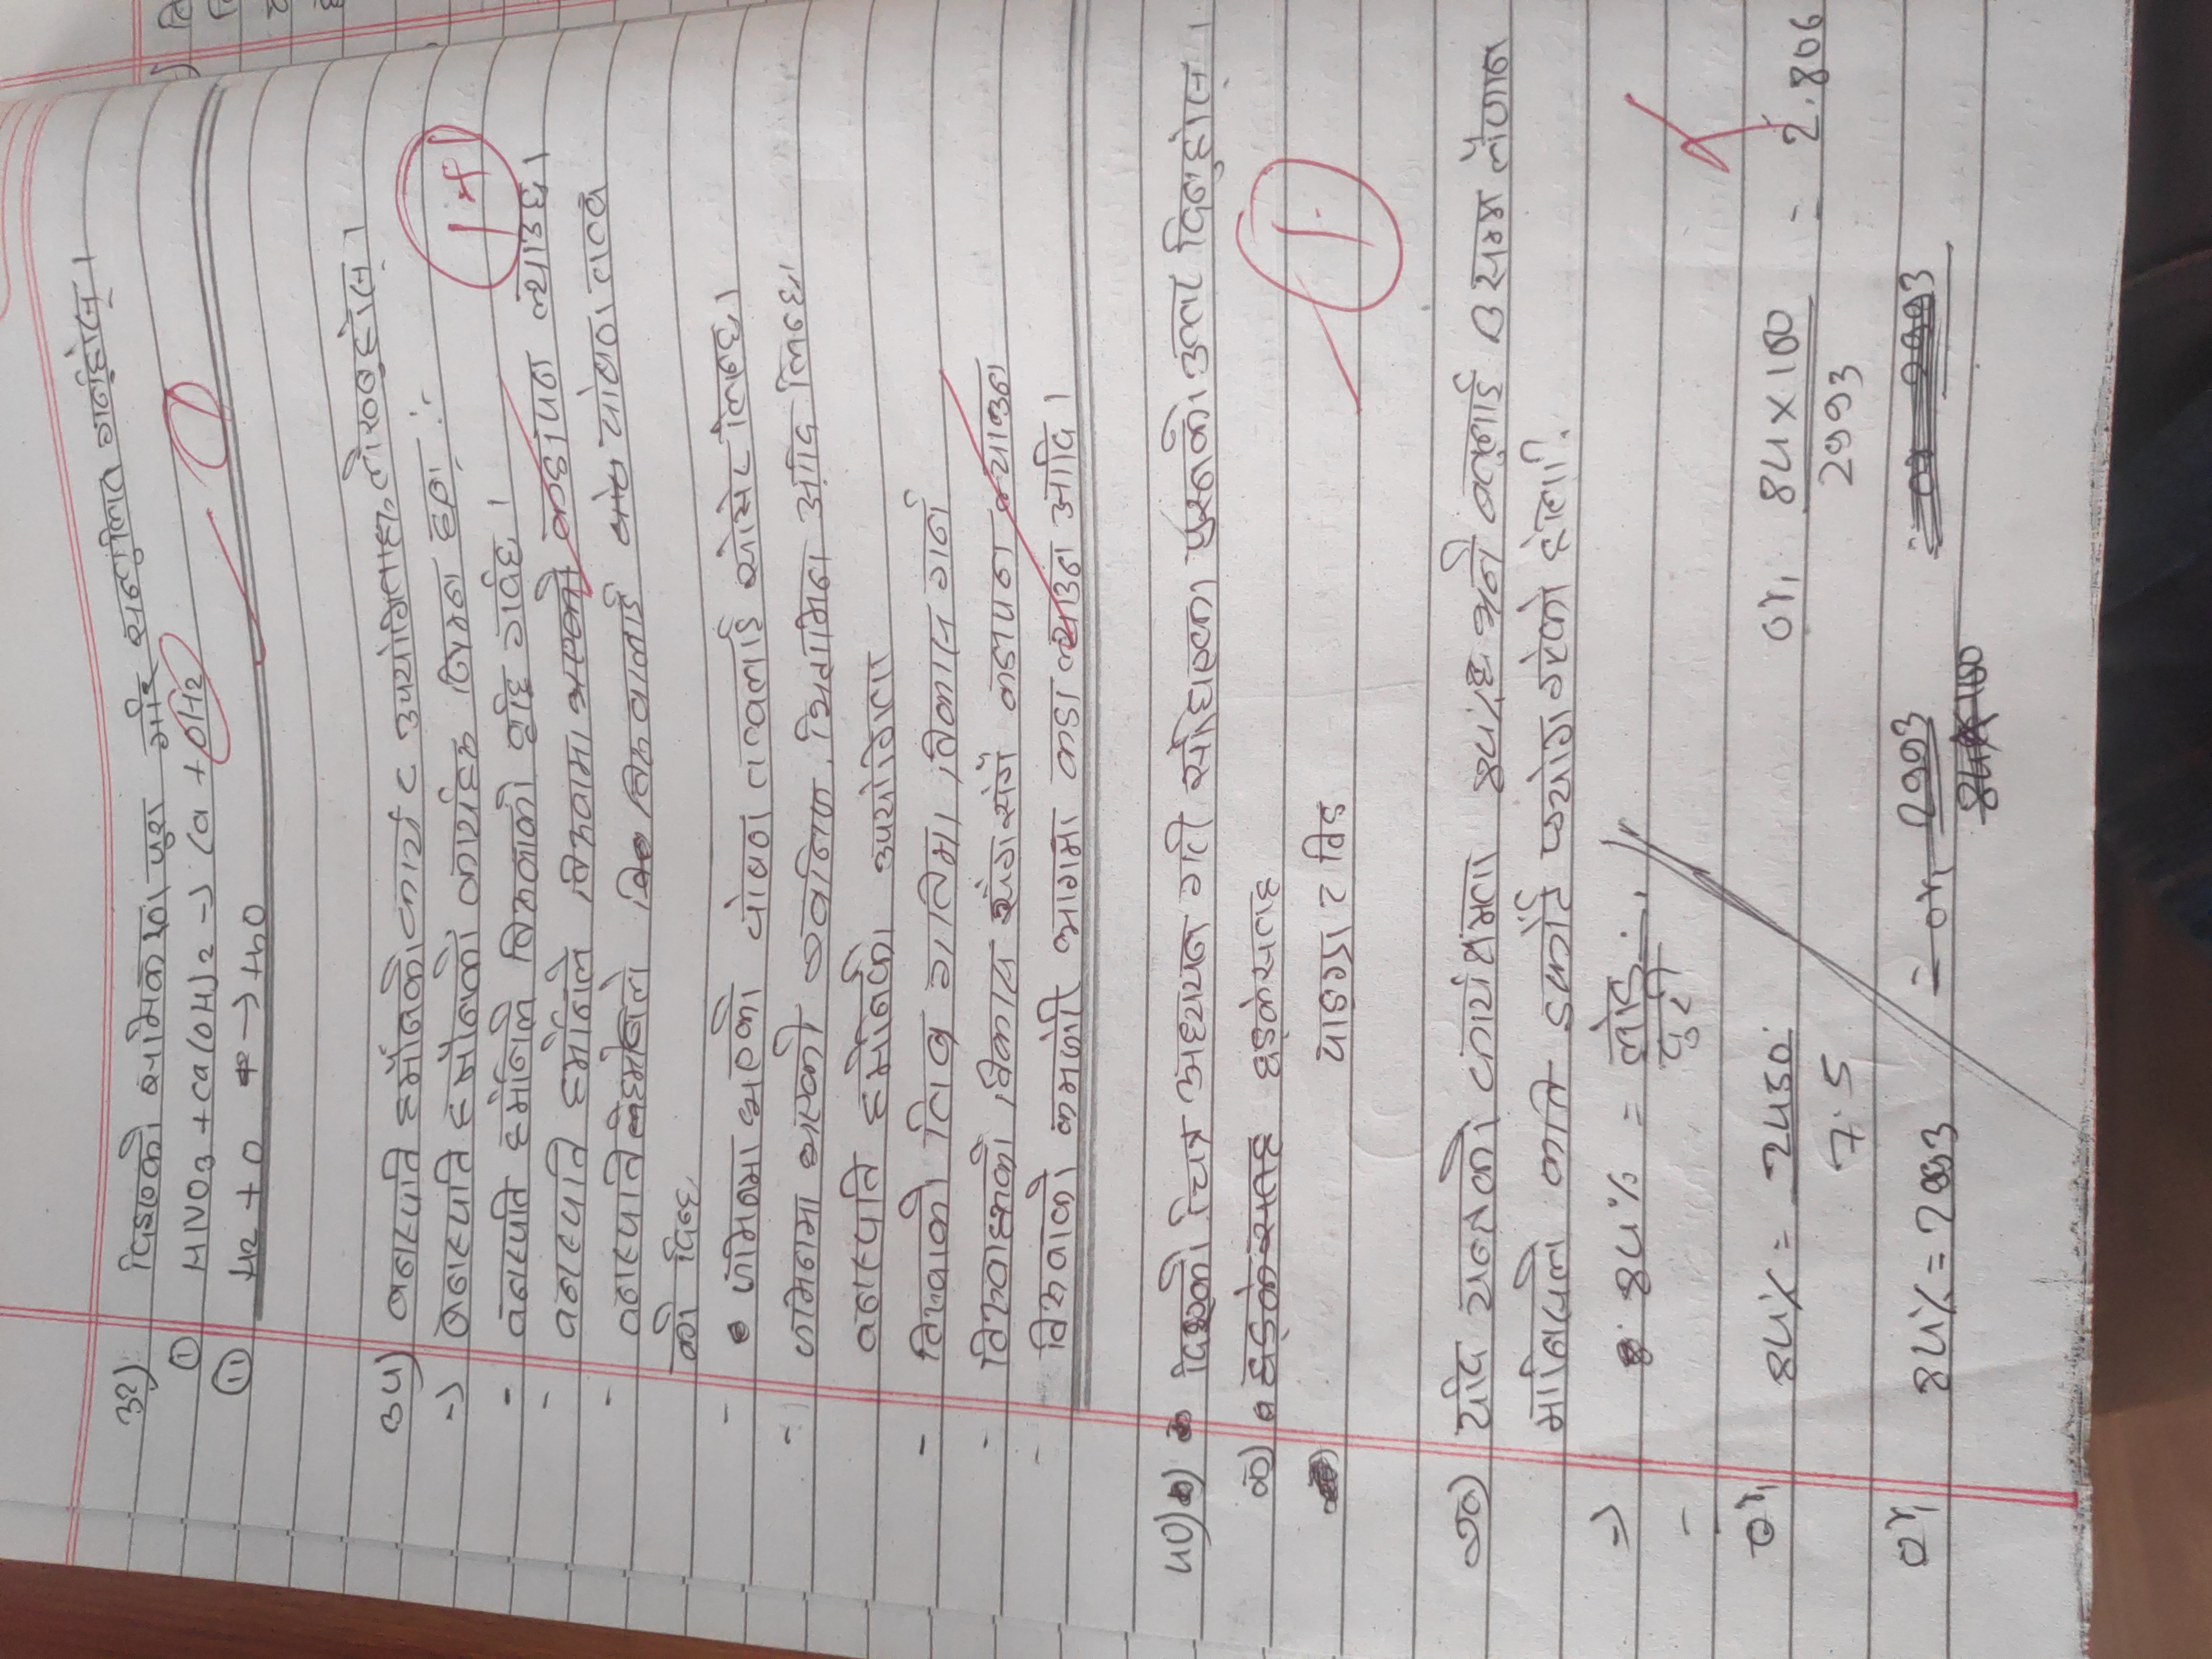 ३२) दिइएको समिकरण पुरा गरि सन्तुलित गर्नुहोस् ।
① HNO3 + Ca(OH)2 → Ca + OH2
①
⑪ H2 + O → H2O
३५) वनस्पति हर्मोनको कार्य र उपयोगिताहरू लेख्नुहोस् ।
→ वनस्पति हर्मोनको कार्यहरू निम्न छन् :-
1+1
- वनस्पति हर्मोनले बिरुवाको वृद्दि गर्दछ ।
- वनस्पति हर्मोनले बिरुवामा भएको कडापन ल्याउछ ।
- वनस्पति हर्मोनले बिरुवालाई पोषण तत्व
को दिन्छ
- जमिनमा भएको पोषण तत्वलाई सोसेर लिन्छ ।
- जमिनमा भएको खनिज, भितामिन आदि लिन्छ।
वनस्पति हर्मोनको उपयोगिता
- बिरुवाको तिब्र गतिमा विकास गर्न
- बिरुवाहरूको विकास सँगसँगै कडापन ल्याउन
- बिरुवाको कमजोरी भागमा कडा ल्याउन आदि ।
५०) दिइएको चित्र अध्ययन गरी सोधिएका प्रश्नको उत्तर दिनुहोस् ।
क) छड्केसतह छड्केसतह
1
पाङग्रा र विड
ख) यदि यन्त्रको कार्यक्षमता ८५%छ भने वस्तुलाई B सम्म लैजान
मानिसले कति इफोर्ट प्रयोग गरेको होला?
⇒ ८५% = लोड / दुरी
or, ८५% = 2450 / 7.5
or, ८५ × 100 / 2993 = 2.806
or, ८५% = 2993
= or, 2993 / ८५×100
= or 2993